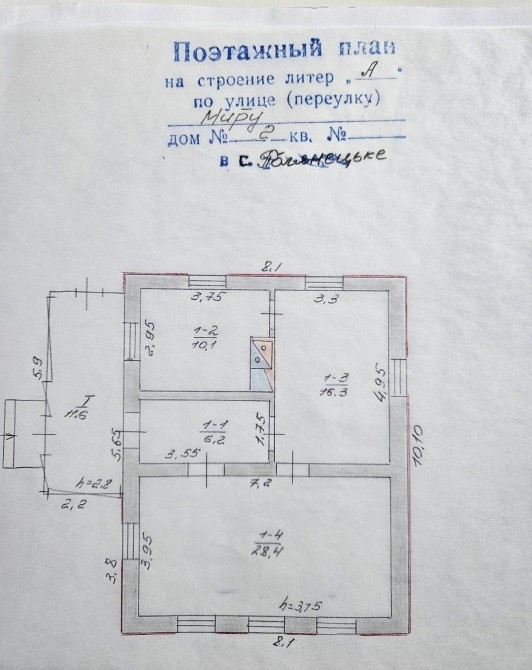 Поэтажный план
на строение литер „А“
по улице (переулку)
Миру
дом № 2 кв. №
в с.
8,1
3,75
3,3
2,95
1-2
10,1
5,9
1-3
16,3
4,95
I
11.6
1-1
6,2
1,75
5,65
3,55
10,10
7,2
h=2.8
2,2
1-4
28,4
3,95
3,8
h=3,15
8.1